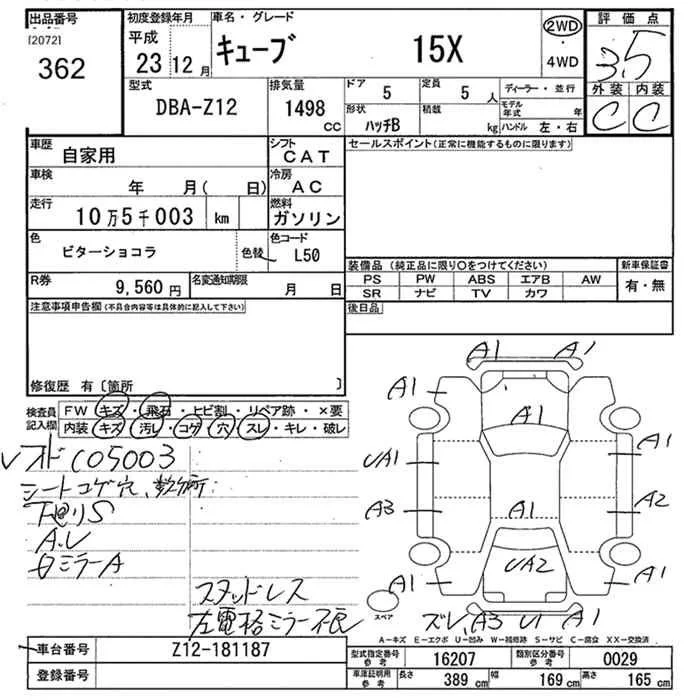 出品番号 初度登録年月 車名・グレード 評価点
[2072]
362
平成
23 12月
キューブ 15X
2WD
・
4WD
3.5
型式 DBA-Z12
排気量 1498 CC
ドア 5 定員 5人
形状 ハッチB 積載 kg
ディーラー・並行
モデル年式 年
ハンドル 左・右
外装 内装
C C
車歴 自家用
シフト CAT
セールスポイント(正常に機能するものに限ります)
車検 年 月( 日)
冷房 AC
走行 10万5千003 km
燃料 ガソリン
色 ビターショコラ 色替
色コード L50
装備品(純正品に限り○をつけてください) 新車保証書
PS PW ABS エアB AW 有・無
SR ナビ TV カワ
R券 9,560円
名変通知期限 月 日
後日品
注意事項申告欄(不具合内容等は具体的に記入して下さい)
修復歴 有〔箇所 〕
検査員記入欄
FW キズ・飛石・ヒビ割・リペア跡・×要
内装 キズ・汚レ・コゲ・穴・スレ・キレ・破レ
105003
シートコゲ穴、数ヶ所
下廻りS
スタッドレス
左電格ミラー不良
A1 A1
A1 A1
A1
UA1 A1
A3 A2
A1
UA2
A1 A1
スペア
ズレ A3 U1 A1
A-キズ E-エクボ U-凹み W-補修跡 S-サビ C-腐食 XX-交換済
車台番号 Z12-181187
型式指定番号 参考 16207 類別区分番号 参考 0029
登録番号
車庫証明用 参考 長さ 389 cm 幅 169 cm 高さ 165 cm